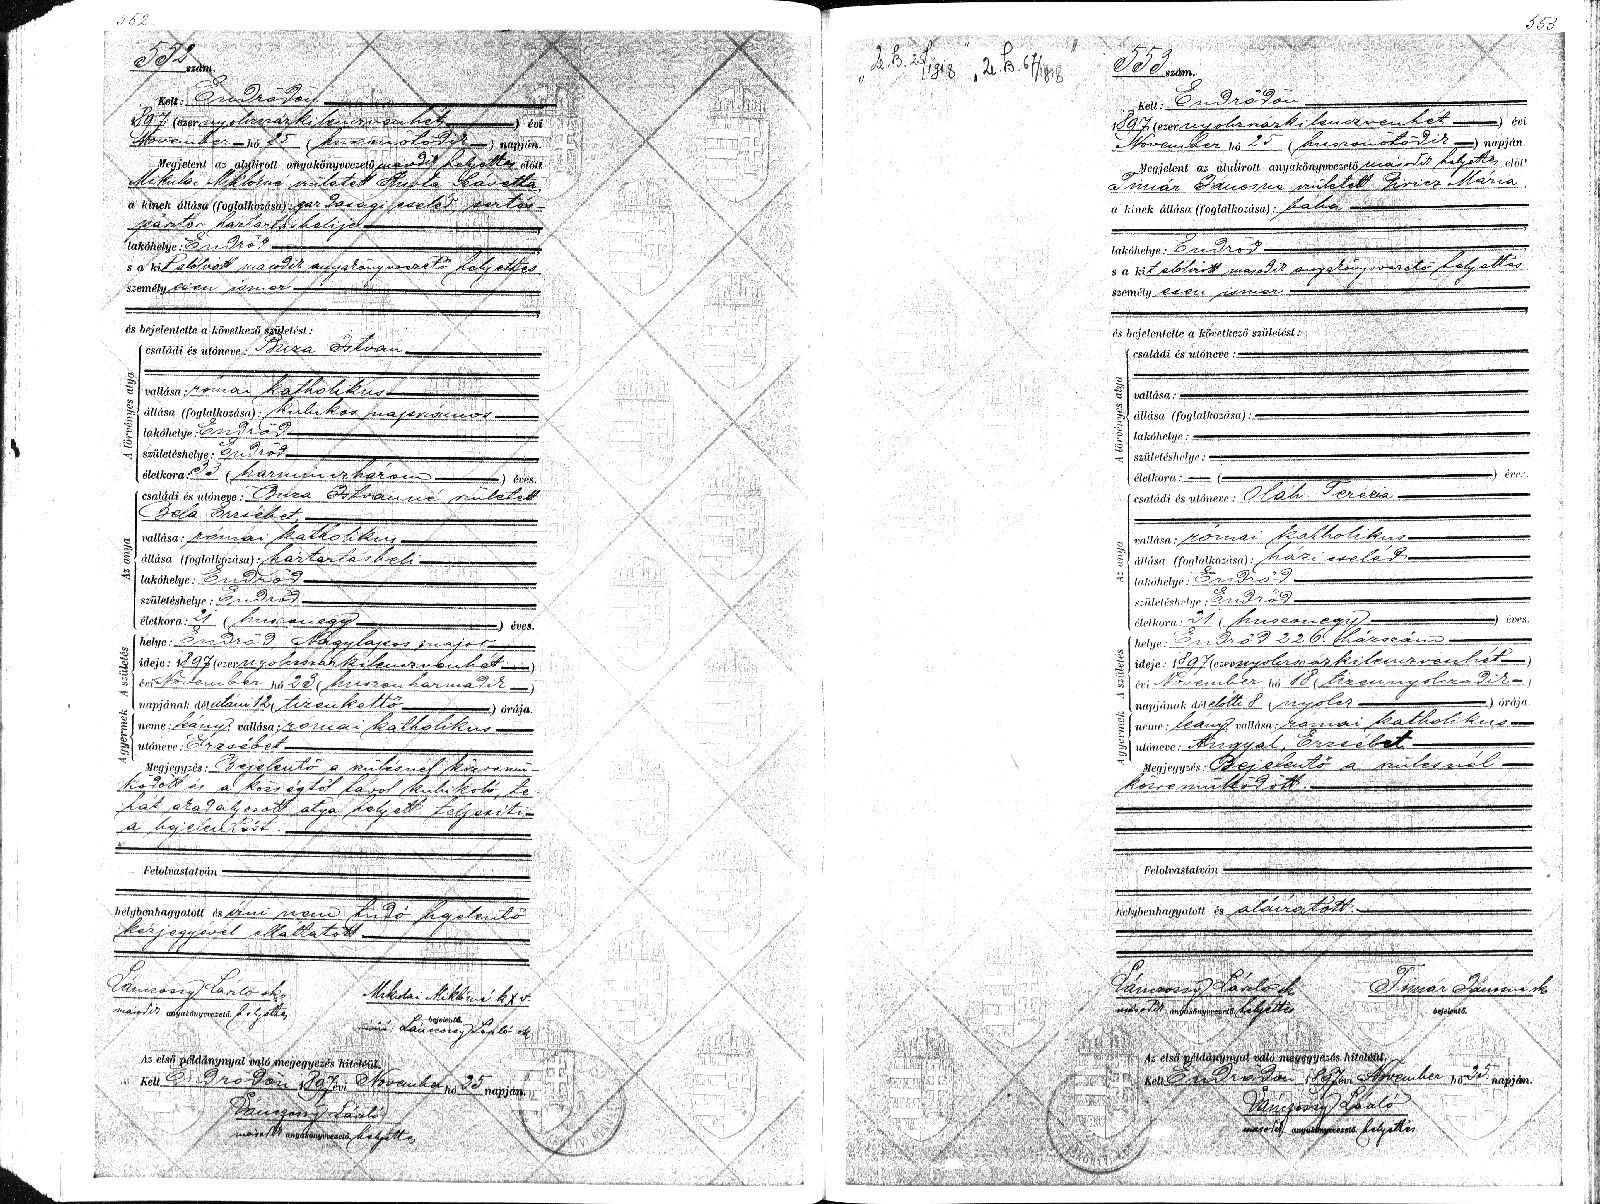 552
552 szám.
Kelt: Endrődön
1897 (ezernyolczszázkilenczvenhét) évi
November hó 25 (huszonötödik) napján.
Megjelent az alulirott anyakönyvvezető második helyettes előtt
Mikulai Miklósné született
a kinek állása (foglalkozása): gazdasági cseléd, sertés-
pásztor háztartásbelije
lakóhelye: Endrőd
s a kit alulirott második anyakönyvvezető helyettes
személyesen ismer
és bejelentette a következő születést:
A törvényes atya
családi és utóneve: Buza István
vallása: római katholikus
állása (foglalkozása): kubikos napszámos
lakóhelye: Endrőd
születéshelye: Endrőd
életkora: 33 (harminczhárom) éves.
Az anya
családi és utóneve: Buza Istvánné született
Bela Erzsébet
vallása: római katholikus
állása (foglalkozása): háztartásbeli
lakóhelye: Endrőd
születéshelye: Endrőd
életkora: 21 (huszonegy) éves.
A születés
helye: Endrőd, Nagylapos major
ideje: 1897 (ezernyolczszázkilenczvenhét)
évi November hó 23 (huszonharmadik)
napjának délután 12 (tizenkettő) órája.
A gyermek
neme: leány; vallása: római katholikus
utóneve: Erzsébet
Megjegyzés: Bejelentő a szülésnél közremü-
ködött és a községtől távol kubikoló, te-
hát akadályozott atya helyett teljesíti
a bejelentést.
Felolvastatván
helybenhagyatott és írni nem tudó bejelentő
kézjegyével elláttatott
Vánczossy László sk.
második anyakönyvvezető helyettes
Mikulai Miklósné k X v.
bejelentő.
Vánczossy László sk
Az első példánynyal való megegyezés hiteléül.
Kelt Endrődön 1897 évi November hó 25 napján.
Vánczossy László
második anyakönyvvezető helyettes
553
553 szám.
Kelt: Endrődön
1897 (ezernyolczszázkilenczvenhét) évi
November hó 25 (huszonötödik) napján.
Megjelent az alulirott anyakönyvvezető második helyettes előtt
Timár Jánosné született Mária
a kinek állása (foglalkozása): bába
lakóhelye: Endrőd
s a kit alulirott második anyakönyvvezető helyettes
személyesen ismer
és bejelentette a következő születést:
A törvényes atya
családi és utóneve:
vallása:
állása (foglalkozása):
lakóhelye:
születéshelye:
életkora: ( ) éves.
Az anya
családi és utóneve: Oláh Terézia
vallása: római katholikus
állása (foglalkozása): házi cseléd
lakóhelye: Endrőd
születéshelye: Endrőd
életkora: 21 (huszonegy) éves.
A születés
helye: Endrőd 226. házszám
ideje: 1897 (ezernyolczszázkilenczvenhét)
évi November hó 18 (tizennyolczadik)
napjának délelőtti 8 (nyolcz) órája.
A gyermek
neme: leány vallása: római katholikus
utóneve: Angyal, Erzsébet
Megjegyzés: Bejelentő a szülésnél
közremüködött.
Felolvastatván
helybenhagyatott és aláíratott.
Vánczossy László sk
második anyakönyvvezető helyettes
Timár Jánosné sk
bejelentő.
Az első példánynyal való megegyezés hiteléül.
Kelt Endrődön 1897 évi November hó 25 napján.
Vánczossy László
második anyakönyvvezető helyettes